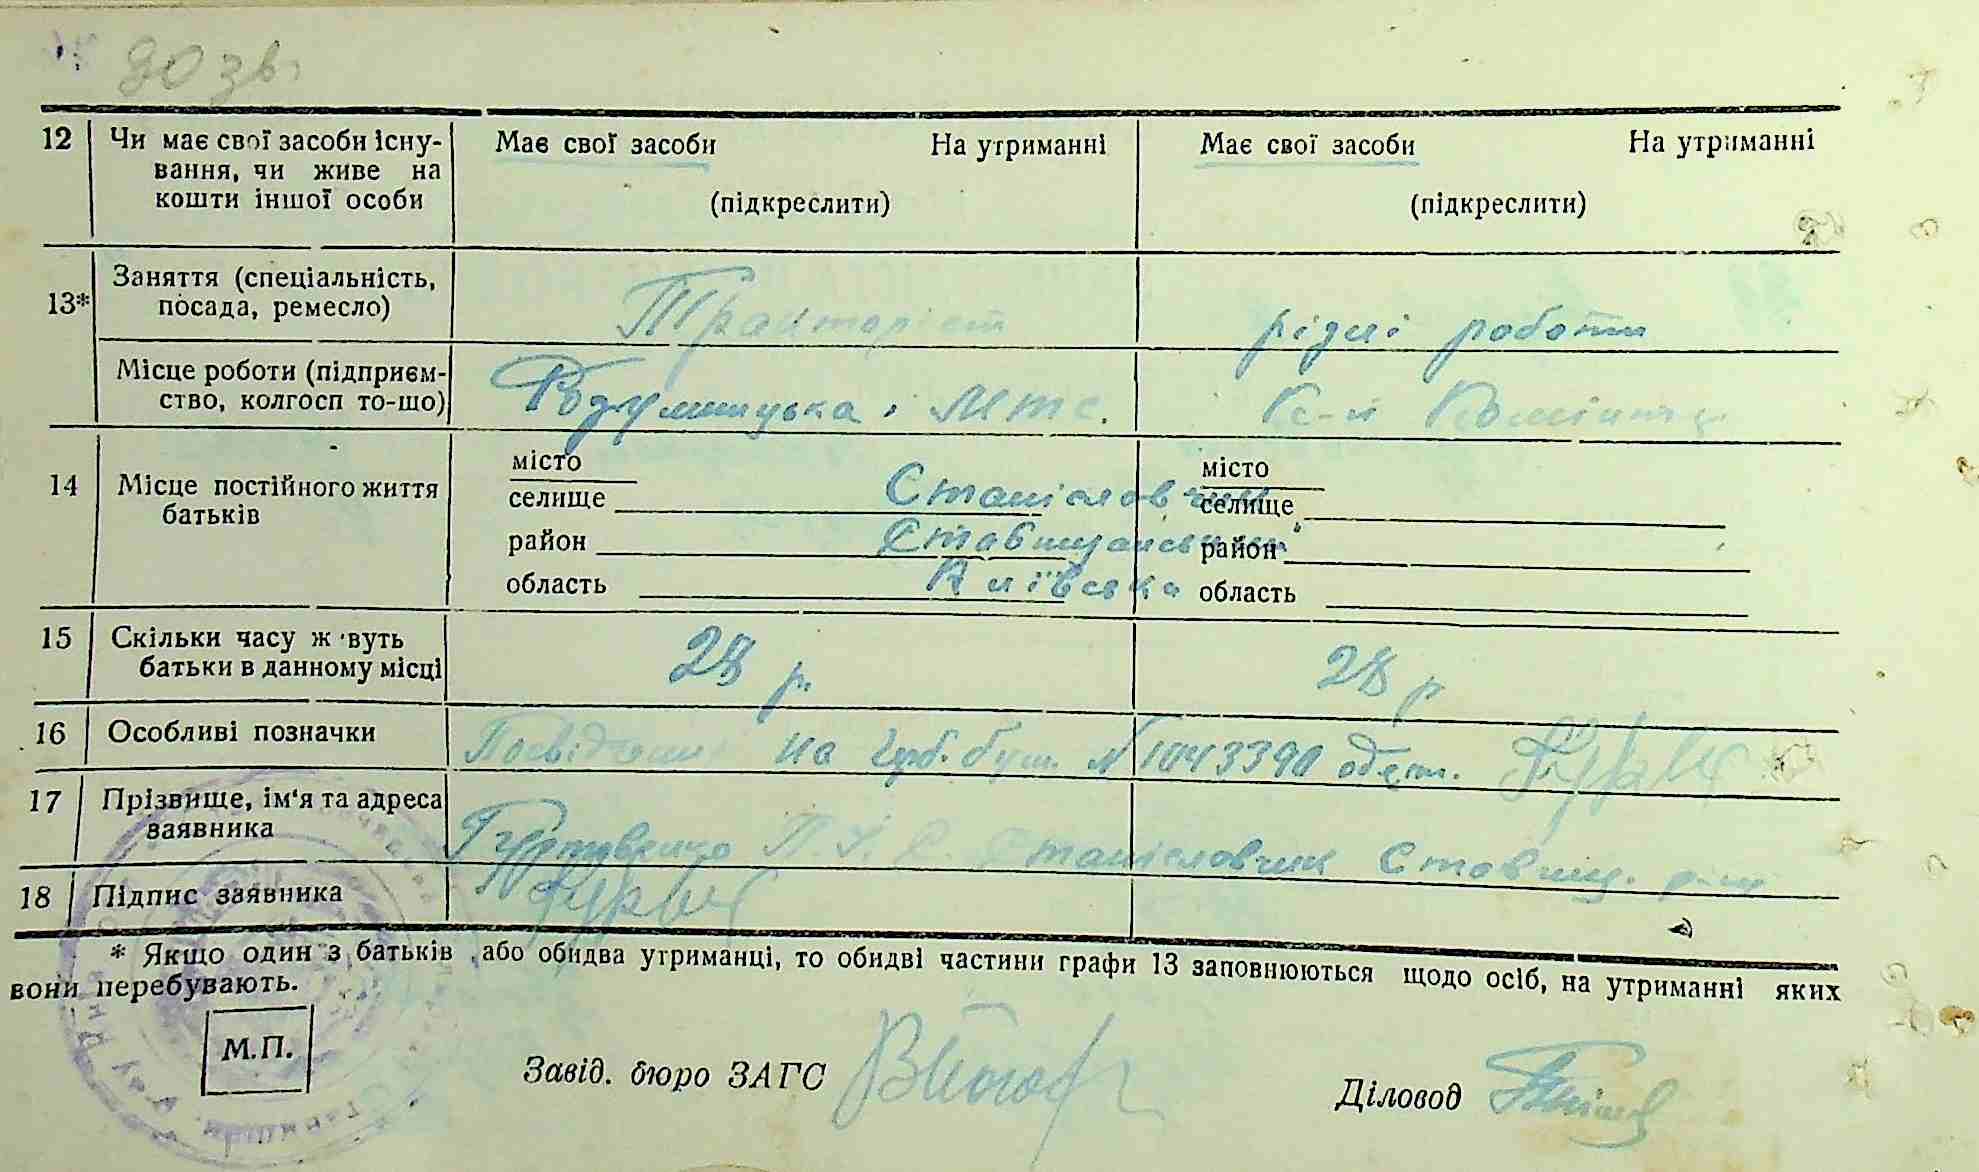 до зв.
12 Чи має свої засоби існу- Має свої засоби На утриманні Має свої засоби На утриманні
вання, чи живе на
кошти іншої особи (підкреслити) (підкреслити)
13* Заняття (спеціальність,
посада, ремесло) Тракторіст різні роботи
Місце роботи (підприєм-
ство, колгосп то-що) Розумницька МТС. К-п
14 Місце постійного життя
батьків
місто місто
селище Станіславчик селище
район Ставищанський район
область Київська область
15 Скільки часу ж вуть
батьки в данному місці 28 р. 28 р
16 Особливі позначки Посвідчення на гурб. бум. N 1043390 одерж.
17 Прізвище, ім'я та адреса
заявника П. У. С. Станіславчик Ставищ. р-ну
18 Підпис заявника
* Якщо один з батьків або обидва утриманці, то обидві частини графи 13 заповнюються щодо осіб, на утриманні яких
вони перебувають.
М.П.
Завід. бюро ЗАГС
Діловод